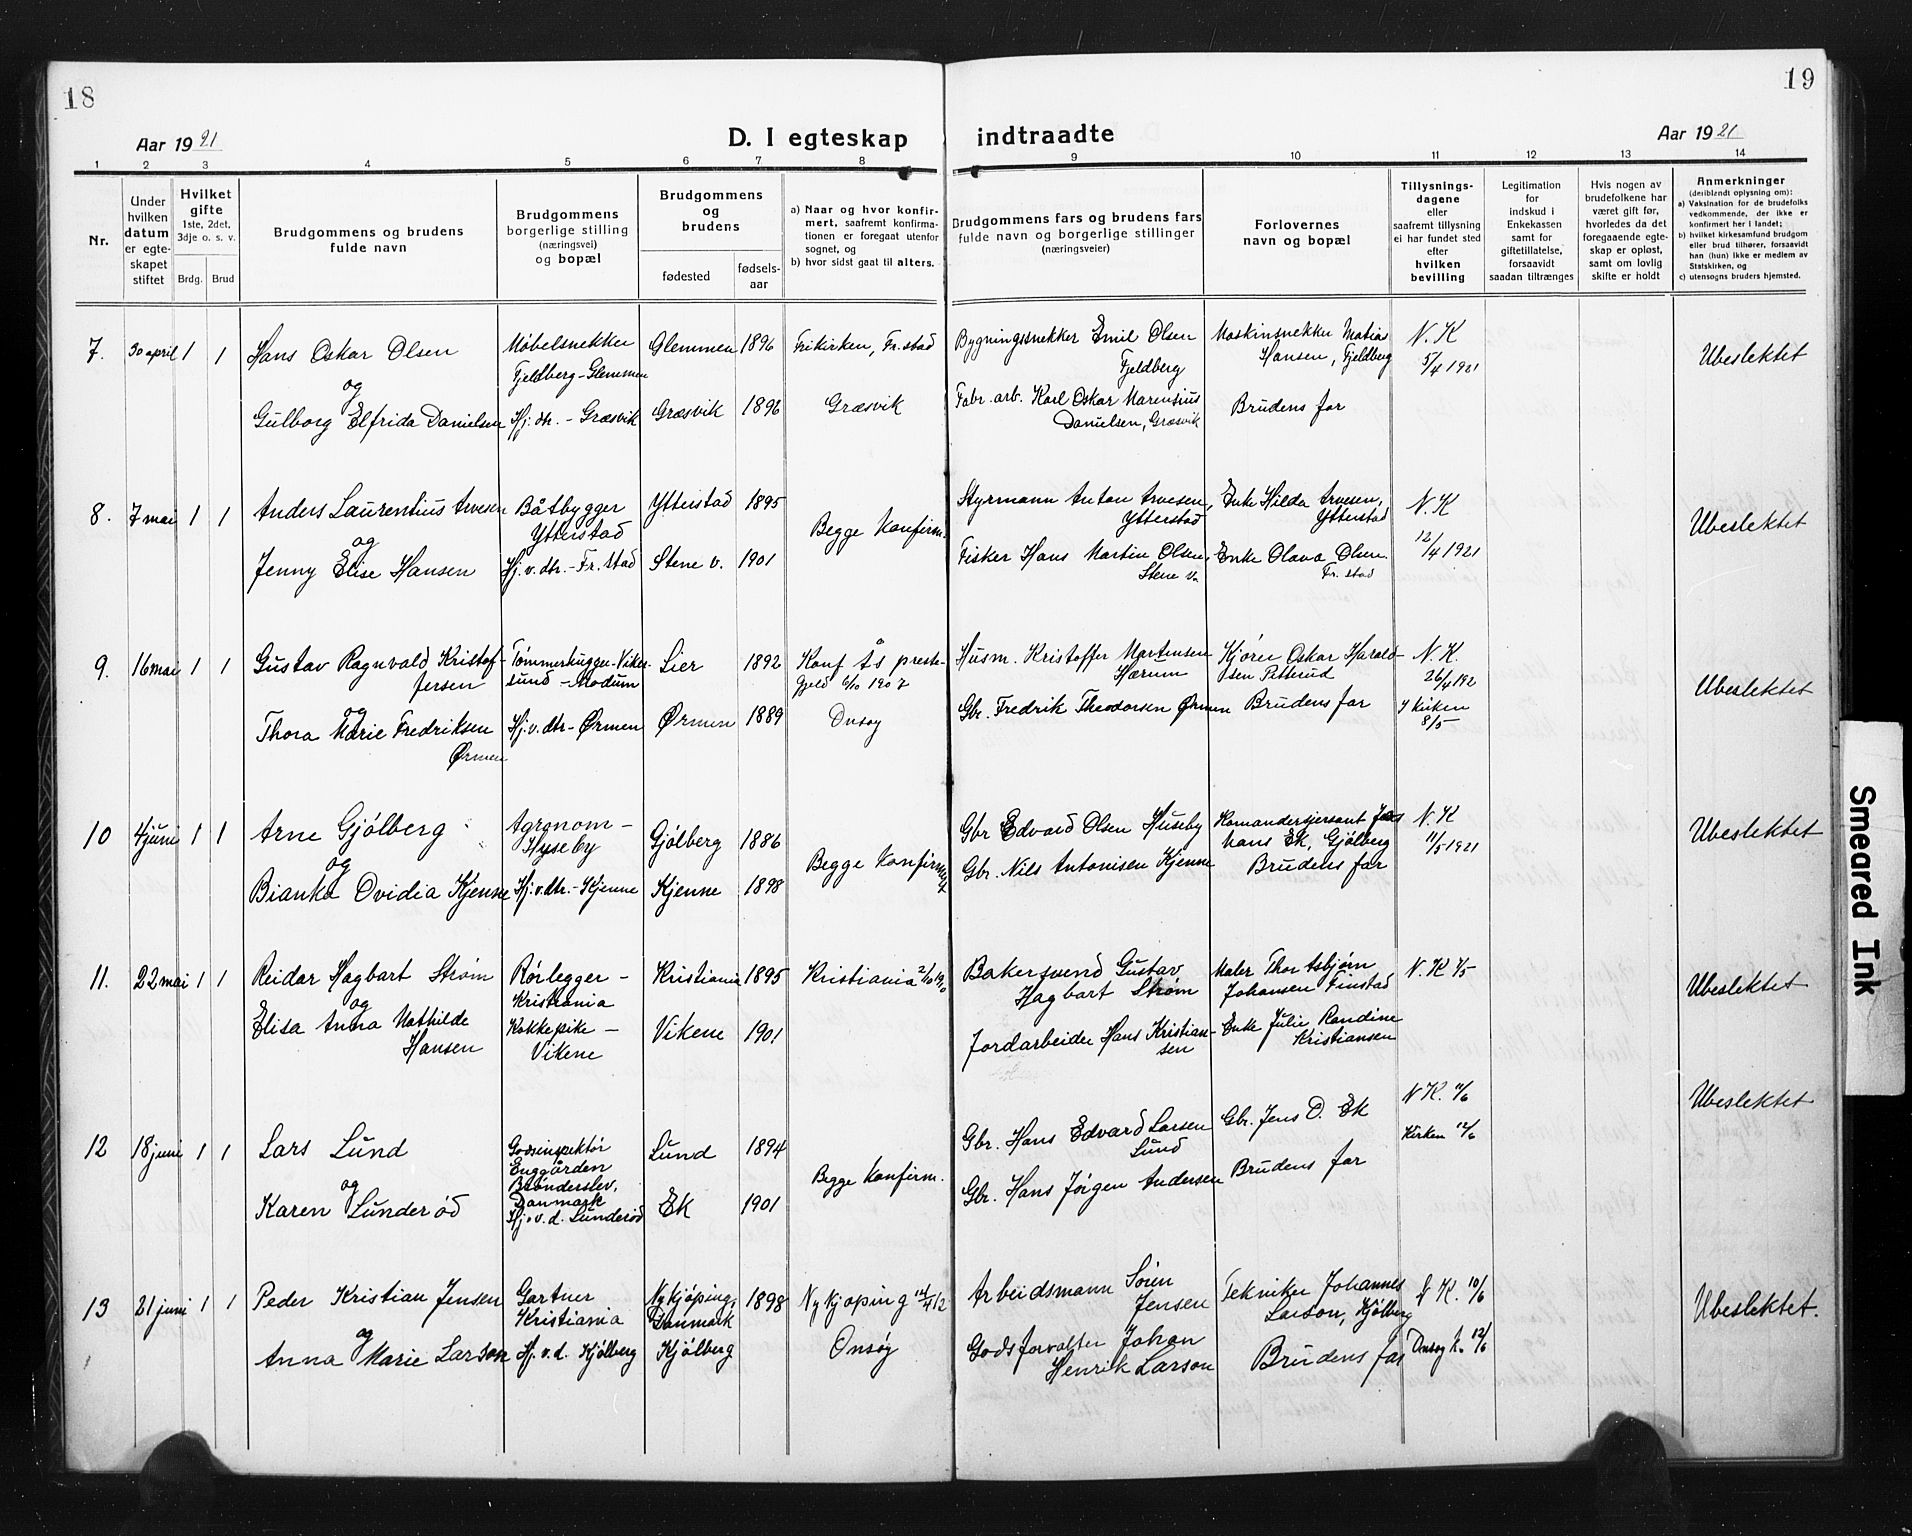 18
19
Aar 1921
D. I egteskap indtraadte
Aar 1921
1 2 3 4 5 6 7 8 9 10 11 12 13 14
Nr.
Under hvilken datum er egte- skapet stiftet
Hvilket gifte 1ste, 2det, 3dje o. s. v.
Brdg. Brud
Brudgommens og brudens fulde navn
Brudgommens borgerlige stilling (næringsvei) og bopæl
Brudgommens og brudens
fødested
fødsels- aar
a) Naar og hvor konfir- mert, saafremt konfirma- tionen er foregaat utenfor sognet, og
b) hvor sidst gaat til alters.
Brudgommens fars og brudens fars fulde navn og borgerlige stillinger (næringsveier)
Forlovernes navn og bopæl
Tillysnings- dagene eller saafremt tillysning ei har fundet sted efter hvilken bevilling
Legitimation for indskud i Enkekassen samt for giftetillatelse, forsaavidt saadan tiltrænges
Hvis nogen av brudefolkene har været gift før, hvorledes da det foregaaende egte- skap er opløst, samt om lovlig skifte er holdt
Anmerkninger (deriblandt oplysning om):
a) Vaksination for de brudefolks vedkommende, der ikke er konfirmert her i landet;
b) hvilket kirkesamfund brudgom eller brud tilhører, forsaavidt han (hun) ikke er medlem av Statskirken, og
c) utensogns bruders hjemsted.
7. 30 april 1 1
Hans Oskar Olsen
og
Gulborg Elfrida Danielsen
Møbelsnekker
Fjeldberg - Glemmen
Hj. dtr. - Græsvik
Glemmen 1896
Græsvik 1896
Frikirken, Fr.stad
Græsvik
Bygningssnekker Emil Olsen
Fjeldberg
Fabr. arb. Karl Oskar Marensius
Danielsen, Græsvik
Maskinsnekker Matias
Hansen, Fjeldberg
Brudens far
N. K
5/4 1921
Ubeslektet
8. 7 mai 1 1
Anders Laurentius Arvesen
og
Jenny Elise Hansen
Båtbygger
Ytterstad
Hj. v. dtr. - Fr. stad
Ytterstad 1895
Stene v. 1901
Begge Konfirm.
Styrmann Anton Arvesen,
Ytterstad
Fisker Hans Martin Olsen,
Stene v.
Enke Hilda Arvesen,
Ytterstad
Enke Olava Olsen
Fr. stad
N. K
12/4 1921
Ubeslektet
9. 16 mai 1 1
Gustav Ragnvald Kristof-
fersen
og
Thora Marie Fredriksen
Ørmen
Tømmerhugger - Viker-
sund - Modum
Hj. v. dtr - Ørmen
Lier 1892
Ørmen 1889
Konf Ås preste-
gjeld 6/10 1907
Onsøy
Husm. Kristoffer Martensen
Hærum
Gbr. Fredrik Theodorsen Ørmen
Kjører Oskar Harald-
sen Pitterud
Brudens far
N. K.
26/4 192
I kirken
8/5
Ubeslektet
10 4 juni 1 1
Arne Gjølberg
og
Bianka Ovidia Kjenne
Agrgnom -
Hyseby
Hj. v. dtr. - Kjenne
Gjølberg 1886
Kjenne 1898
Begge Konfirm
Gbr Edvard Olsen Huseby
Gbr. Nils Antonisen Kjenne
Komandersjersant
hans Ek, Gjølberg
Brudens far
N. K
11/5 1921
Ubeslektet
11. 22 mai 1 1
Reidar Hagbart Strøm
og
Elisa Anna Mathilde
Hansen
Rørlegger -
Kristiania
Kokkepike -
Vikene
Kristiania 1895
Vikene 1901
Kristiania 2/10 1910
Bakersvend Gustav
Hagbart Strøm
Jordarbeider Hans Kristian-
sen
Maler Thor Asbjørn
Johansen Finstad
Enke Julie Randine
Kristiansen
N. K 1/5
Ubeslektet
12 18 juni 1 1
Lars Lund
og
Karen Lunderød
Godsinspektør
Enggården
Brønderslev,
Danmark
Hj. v. d. Lunderød
Lund 1894
Ek 1901
Begge Konfirm.
Gbr. Hans Edvard Larsen
Lund
Gbr. Hans Jørgen Andersen
Gbr. Jens D. Ek
Brudens far
N K. 11/6
Kirken 12/6
Ubeslektet
13 21 juni 1 1
Peder Kristian Jensen
og
Anna Marie Larson
Gartner
Kristiania
Hj. v. d. Kjølberg
Nykjøping,
Danmark 1898
Kjølberg
Nykjøping 14/4 12
Onsøy
Arbeidsmann Søren
Jensen
Godsforvalter Johan
Henrik Larson
Tekniker Johannes
Larson, Kjølberg
Brudens far
N K. 10/6
Onsøy k. 12/6
Ubeslektet.
Smeared Ink